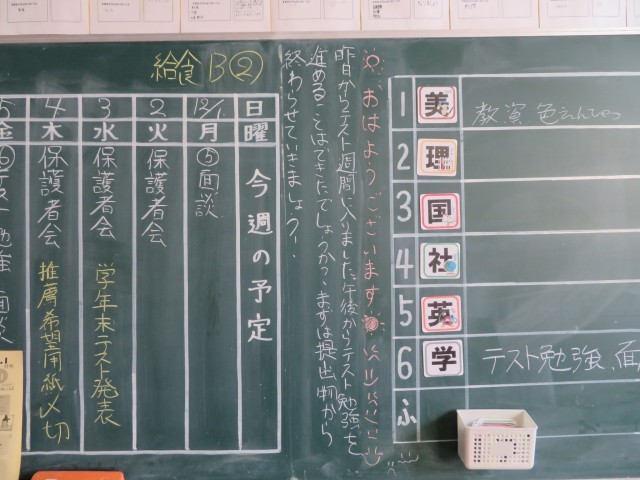 給食 B②
1 美 教、資、色えんぴつ
2 理
3 国
4 社
5 英
6 学 テスト勉強、面
ふ
おはようございます
昨日からテスト週間に入りました。午後からテスト勉強を
進めることはできたでしょうか?まずは提出物から
終わらせていきましょう!
今週の予定
日 曜
12/1 月 ⑤面談
2 火 保護者会
3 水 保護者会 学年末テスト発表
4 木 保護者会 推薦希望用紙〆切
5 金 ⑥テスト勉強 面談